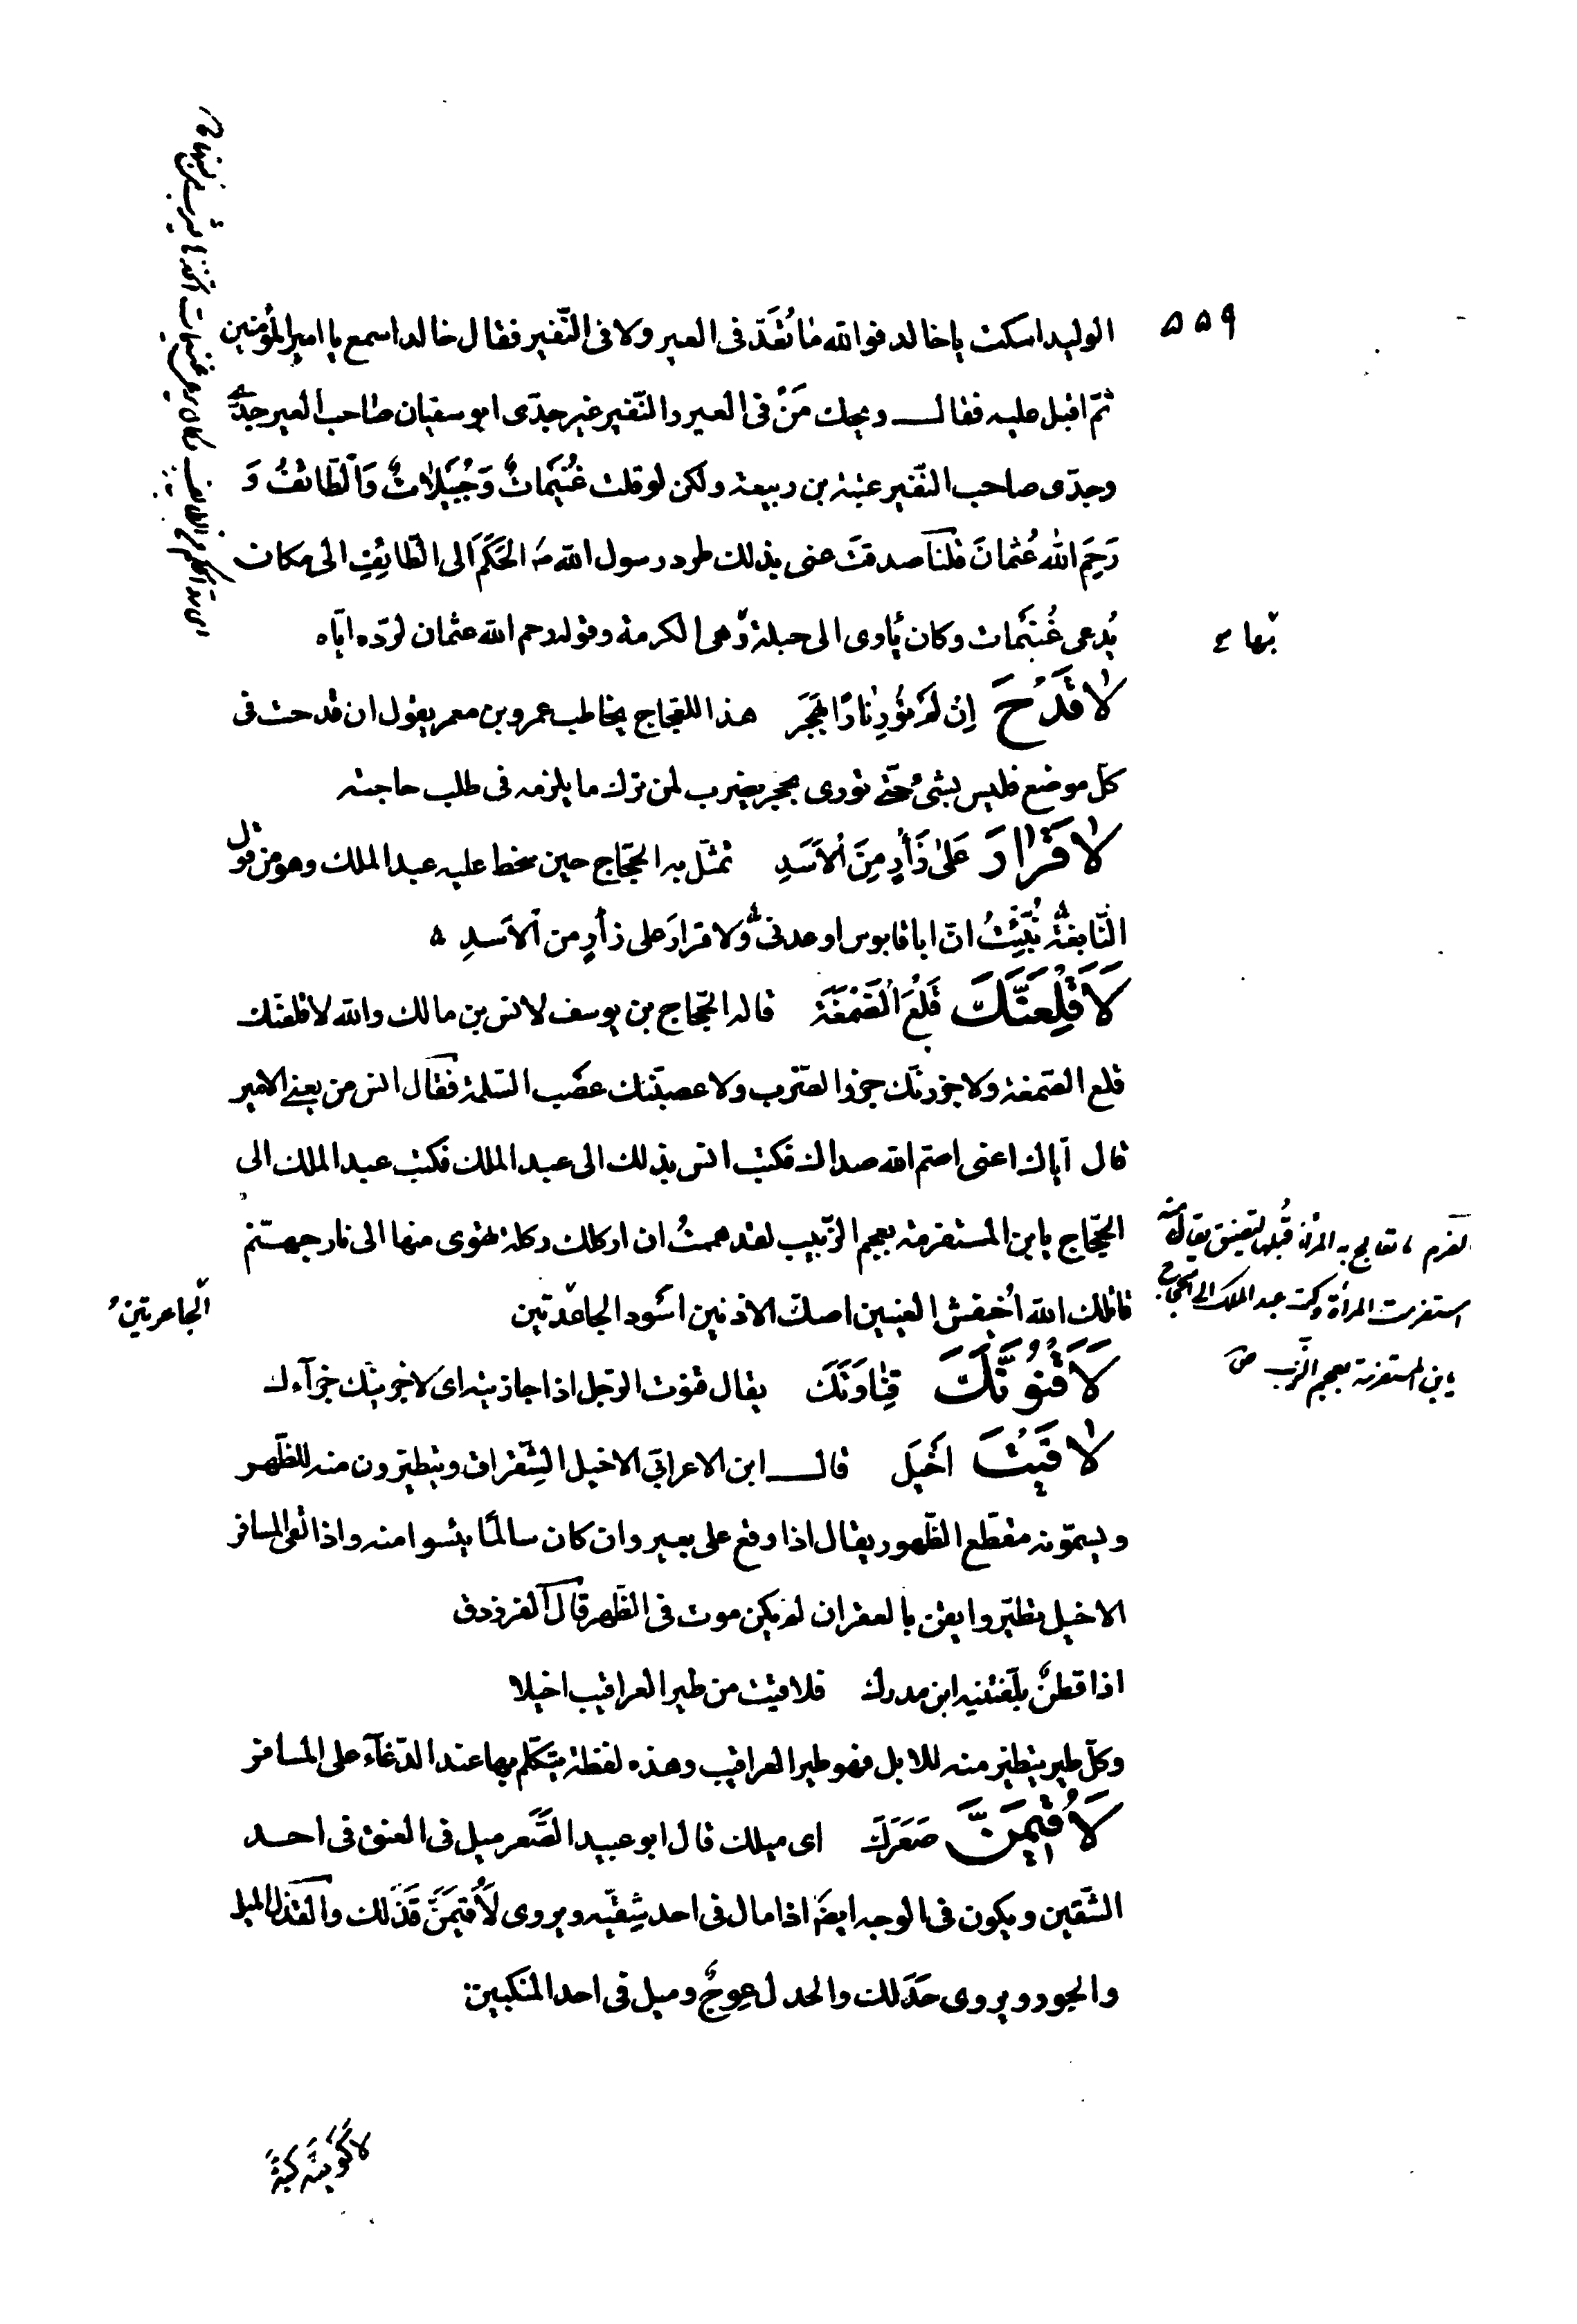 ٥٥٩
الوليد اسكت يا خالد فوالله ما تُعَدّ فى العير ولا فى النّفير فقال خالد اسمع يا امير المؤمنين
ثمّ اقبل عليه فقال ويحك مَنْ فى العير والنّفير غير جدّى ابو سفيان صاحب العير جدّى
وجدّى صاحب النّفير عتبة بن ربيعة ولكن لو قلت غُنَيْمَاتٌ وَحُبَيْلاتٌ وَالطّائفُ وَ
رَحِمَ اللهُ عُثمانَ قلنا صدقتَ عنى بذلك طرد رسول الله ص الحَكَمَ الى الطّائِفِ الى مكان
يُدعى غُنَيْمات وكان يأوى الى حبلة وهى الكرمة وقوله رحم الله عثمان لردّه ايّاه
بها
لا قَدْحَ اِنْ لَمْ تُؤْرِ نارًا بِهَجَرَ هذا للعجاج يخاطب عمرو بن معمر يقول ان قدحت فى
كلّ موضع فليس بشئ حتّى تورى بهجر يضرب لمن ترك ما يلزمه فى طلب حاجته
لا قَرارَ عَلى زَأْرٍ مِنَ الاَسَدِ تمثّل به الحجّاج حين سخط عليه عبد الملك وهو من قول
النّابغة نُبِّئْتُ انّ ابا قابوس اوعدنى ولا قرارَ على زأرٍ من الاَسدِ
لَاَقْلَعَنَّكَ قَلْعَ الصَّمْغَةِ قاله الحّجاج بن يوسف لانس بن مالك والله لاقلعنّك
قلع الصّمغة ولاجزرنّك جزر الضّرب ولاعصبنّك عصب السّلمة فقال انس من يعنى الامير
قال ايّاك اعنى اصمّ الله صداك فكتب انس بذلك الى عبد الملك فكتب عبد الملك الى
الحّجاج يا ابن المستفرمة بعجم الزّبيب لقد هممتُ ان اركلك ركلة تهوى منها الى نار جهنّم
قاتلك الله اُخيفش العينين اصكّ الاذنين اسود الجاعدتين
الجاعرتين
استفرمت المرأة وكتب عبد الملك الى الحجاج
يا بن المستفرمة بعجم الزّبيب
لَاَقْنُوَنَّكَ قِنَاوَتَكَ يقال قنوت الرّجل اذا جازيته اى لاجزينّك جزآءك
لاقَيْتَ اَخْيَلَ قال ابن الاعرابّى الاخيل الشِّقراق ويتطيّرون منه للظّهر
ويسمّونه مقطّع الظّهور يقال اذا وقع على بعير وان كان سالمًا يئسوا منه واذا لقى المسافر
الاخيل تطيّر وايقن بالعقر ان لم يكن موت فى الظّهر قال الفرزدق
اذا قطنٌ بلّغتنيه ابن مدرك فلاقيت من طير العراقيب اخيلا
وكلّ طير يتطيّر منه للابل فهو طير العراقيب وهذه لفظة يتكّلم بها عند الدّعآء على المسافر
لَاُقِيمَنَّ صَعَرَكَ اى ميلك قال ابو عبيد الصَّعَر ميل فى العنق فى احد
الشّقين ويكون فى الوجه ايضًا اذا مال فى احد شِقّيه ويروى لَاُقيمَنَّ قَذَلك والقذل الميل
والجور ويروى حَدَلك والحدل عِوجٌ وميل فى احد المنكبين
لاَكْوِيَنَّه كَيَّةَ